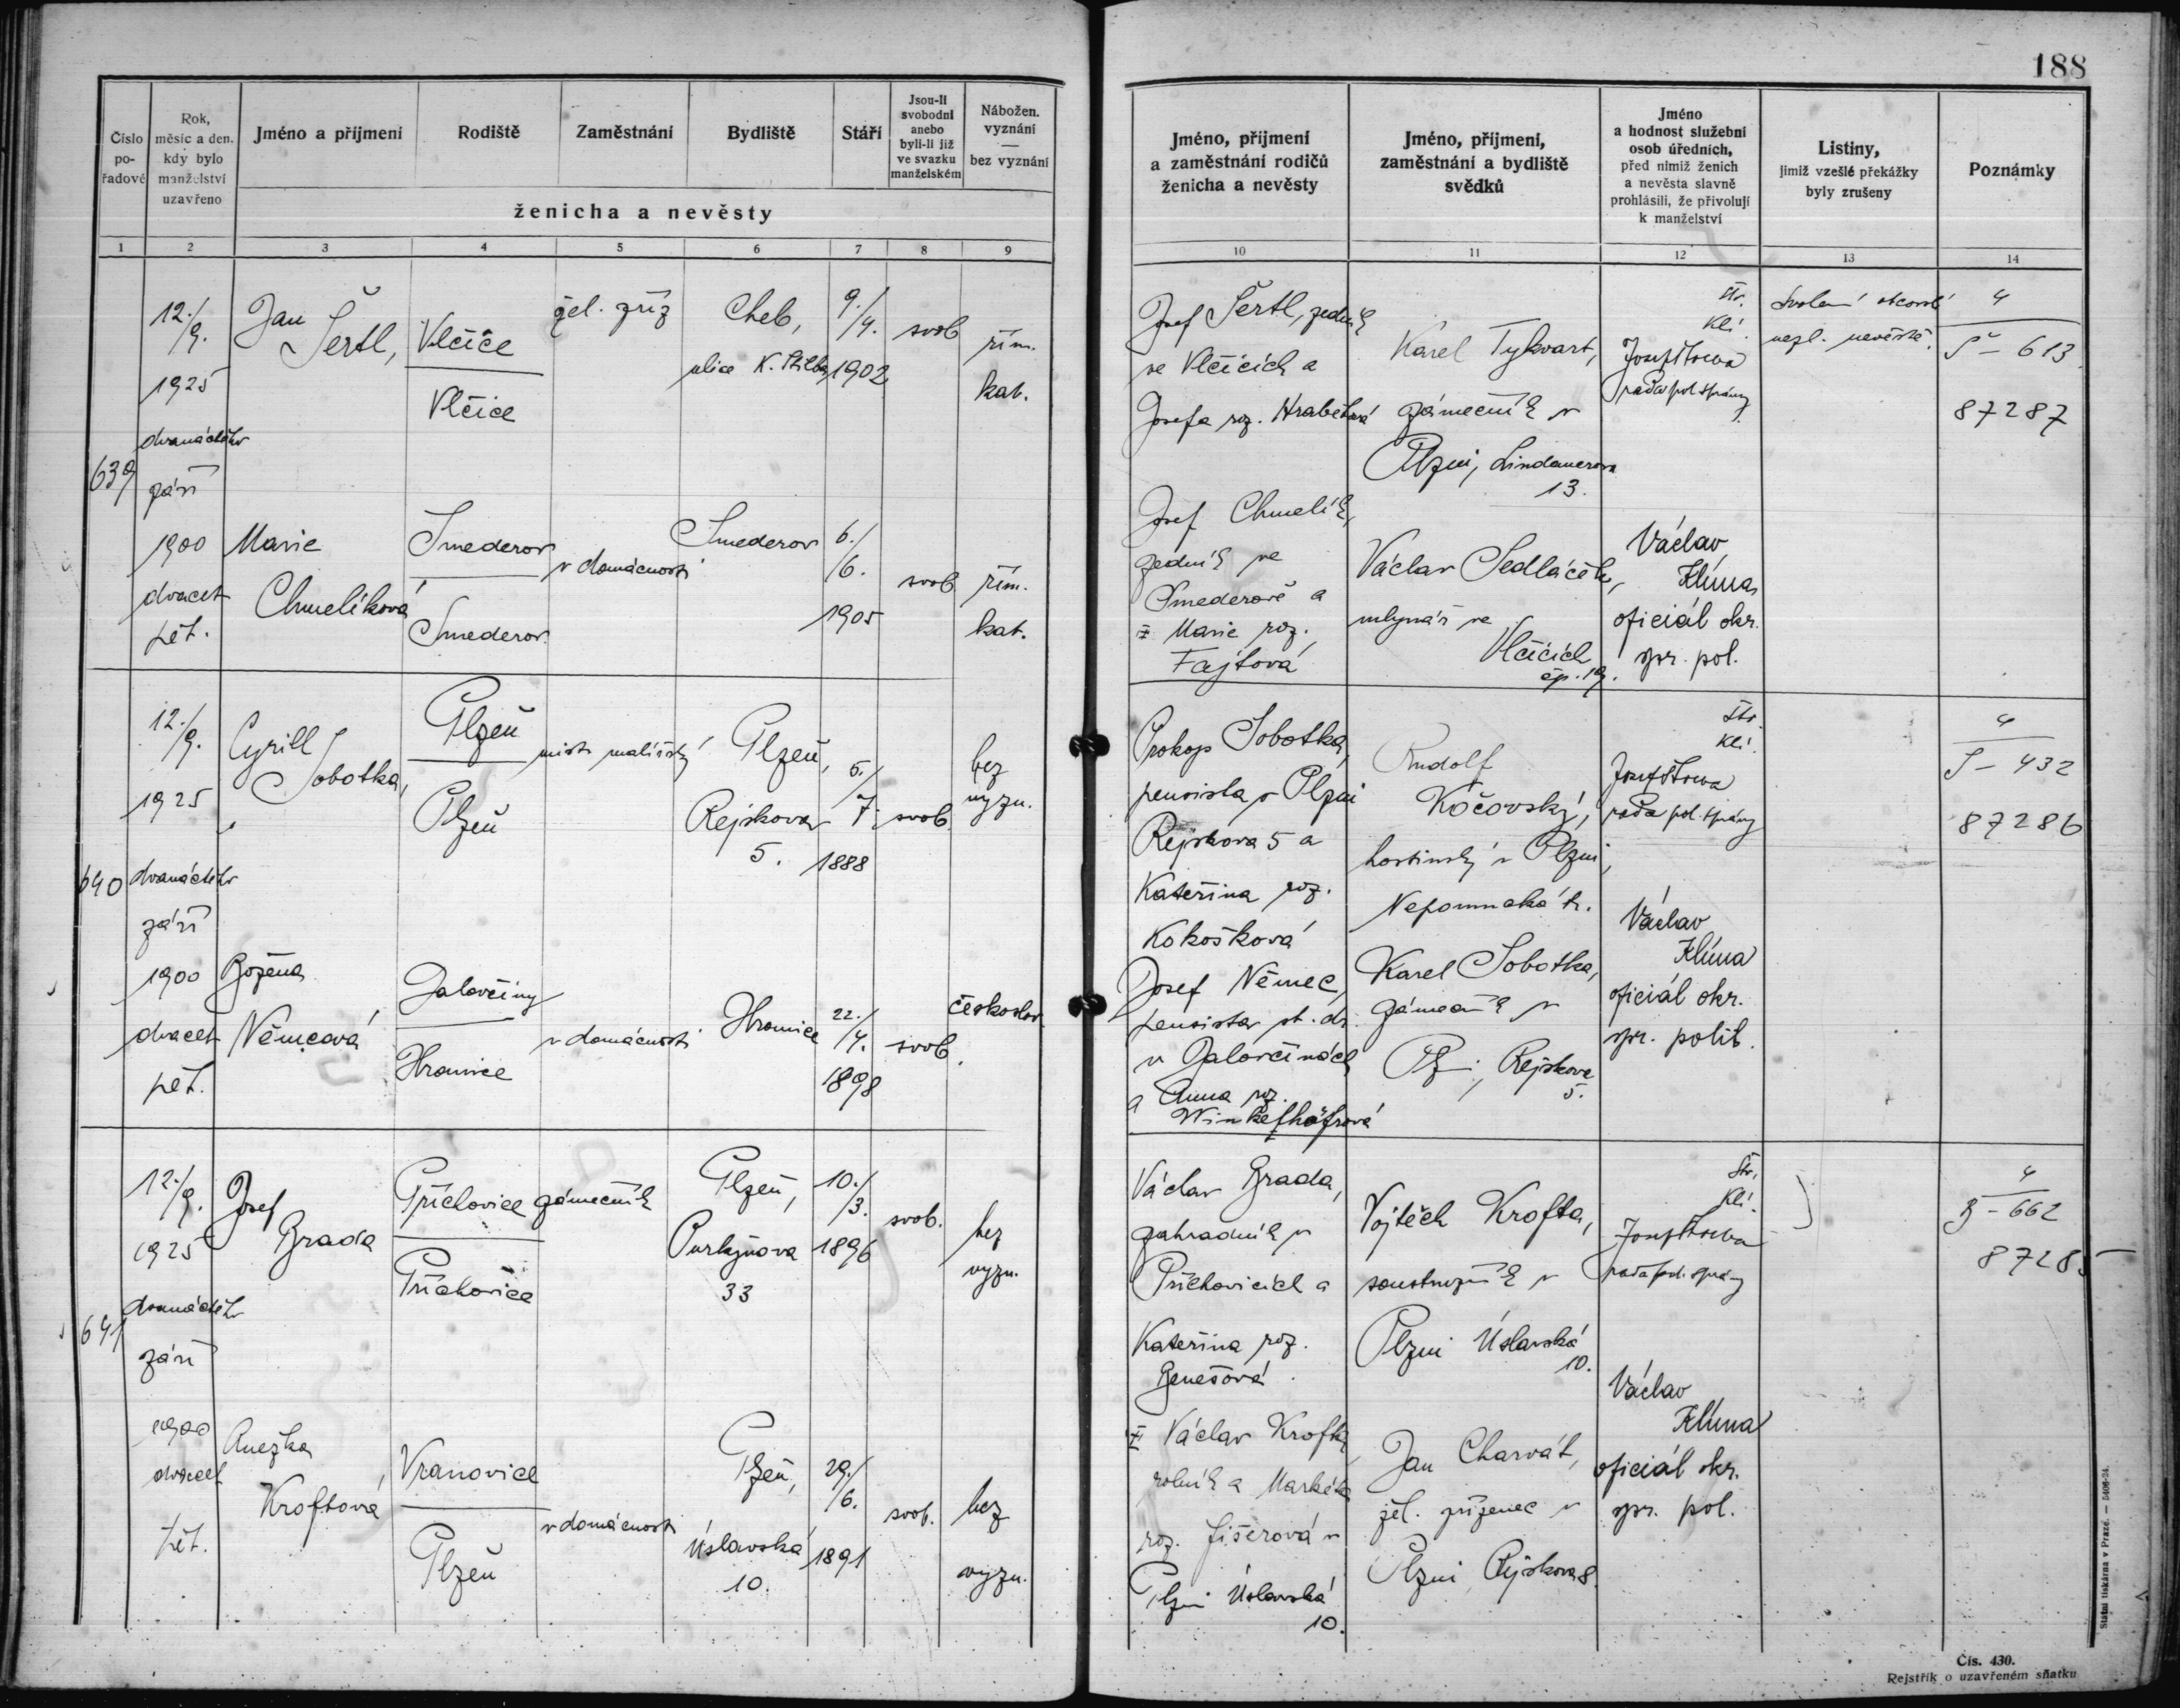 188
Číslo pořadové
Rok, měsíc a den, kdy bylo manželství uzavřeno
Jméno a příjmení
Rodiště
Zaměstnání
Bydliště
Stáří
Jsou-li svobodni anebo byli-li již ve svazku manželském
Nábožen. vyznání — bez vyznání
ženicha a nevěsty
Jméno, příjmení a zaměstnání rodičů ženicha a nevěsty
Jméno, příjmení, zaměstnání a bydliště svědků
Jméno a hodnost služební osob úředních, před nimiž ženich a nevěsta slavně prohlásili, že přivolují k manželství
Listiny, jimiž vzešlé překážky byly zrušeny
Poznámky
1 2 3 4 5 6 7 8 9 10 11 12 13 14
639
12./9.
1925
dvanáctého
září
1900
dvacet
pět.
Jan
Šertl,
Vlčice
Vlčice
žel. zříz
Cheb,
ulice K.
9./4.
1902
svob
řím.
kat.
Josef Šertl, zedník
ve Vlčicích a
Josefa roz. Hrabětová
Karel Tykvart,
zámečník v
Plzni, Lindauerova
13.
Štr.
Klí.
Josef
rada pol. správy
Svolení otcovské
nezl. nevěstě.
4
Š – 613
87287
Marie
Chmelíková
Smederov
Smederov
v domácnosti
Smederov
6./6.
1905
svob
řím.
kat.
Josef Chmelík,
zedník ve
Smederově a
Marie roz.
Fajtová
Václav Sedláček,
mlynář ve
Vlčicích
čp. 19.
Václav
Klíma
oficiál okr.
spr. pol.
640
12./9.
1925
dvanáctého
září
1900
dvacet
pět.
Cyrill
Sobotka,
Plzeň
Plzeň
mistr malířský
Plzeň,
Rejskova
5.
5./7.
1888
svob.
bez
vyzn.
Prokop Sobotka,
pensista v Plzni
Rejskova 5 a
Kateřina roz.
Kokošková
Rudolf
Kočovský,
hostinský v Plzni,
Nepomucká tř.
Štr.
Klí.
Josef
rada pol. správy
4
S – 432
87286
Božena
Němcová
Jalovčiny
Hromice
v domácnosti
Hromice
22./4.
1898
svob.
českoslov.
Josef Němec,
pensista st. dr.
v Jalovčinách
a Anna roz.
Winkelhöfrová
Karel Sobotka,
zámečník v
Plzni, Rejskova
5.
Václav
Klíma
oficiál okr.
spr. polit.
641
12./9.
1925
dvanáctého
září
1900
dvacet
pět.
Josef
Brada
Příchovice
Příchovice
zámečník
Plzeň,
Purkyňova
33
10./3.
1896
svob.
bez
vyzn.
Václav Brada,
zahradník v
Příchovicích a
Kateřina roz.
Benešová
Vojtěch Krofta,
soustružník v
Plzni Úslavská
10.
Štr.
Klí.
Josef
rada pol. správy
4
B – 662
87285
Anežka
Kroftová
Vranovice
Plzeň
v domácnosti
Plzeň,
Úslavská
10.
29./6.
1891
svob.
bez
vyzn.
Václav Krofta,
rolník a Markéta
roz. Fišerová v
Plzni Úslavská
10.
Jan Charvát,
žel. zřízenec v
Plzni Rejskova 8.
Václav
Klíma
oficiál okr.
spr. pol.
Státní tiskárna v Praze. — 5406-24.
Čís. 430.
Rejstřík o uzavřeném sňatku